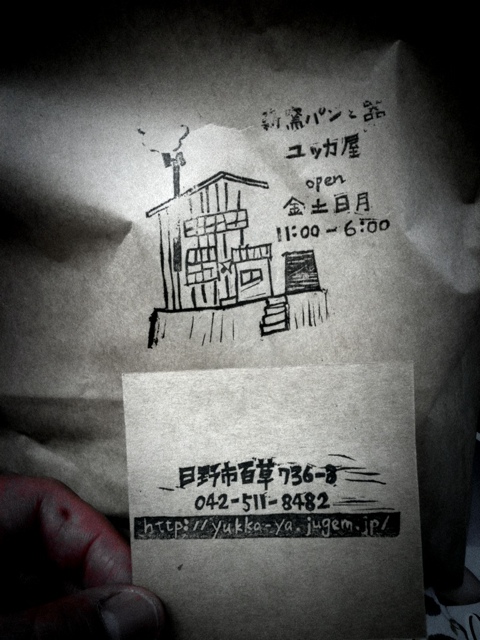 薪窯パンと器
ユッカ屋
open
金土日月
11:00-6:00
日野市百草736-8
042-511-8482
http://yukka-ya.jugem.jp/